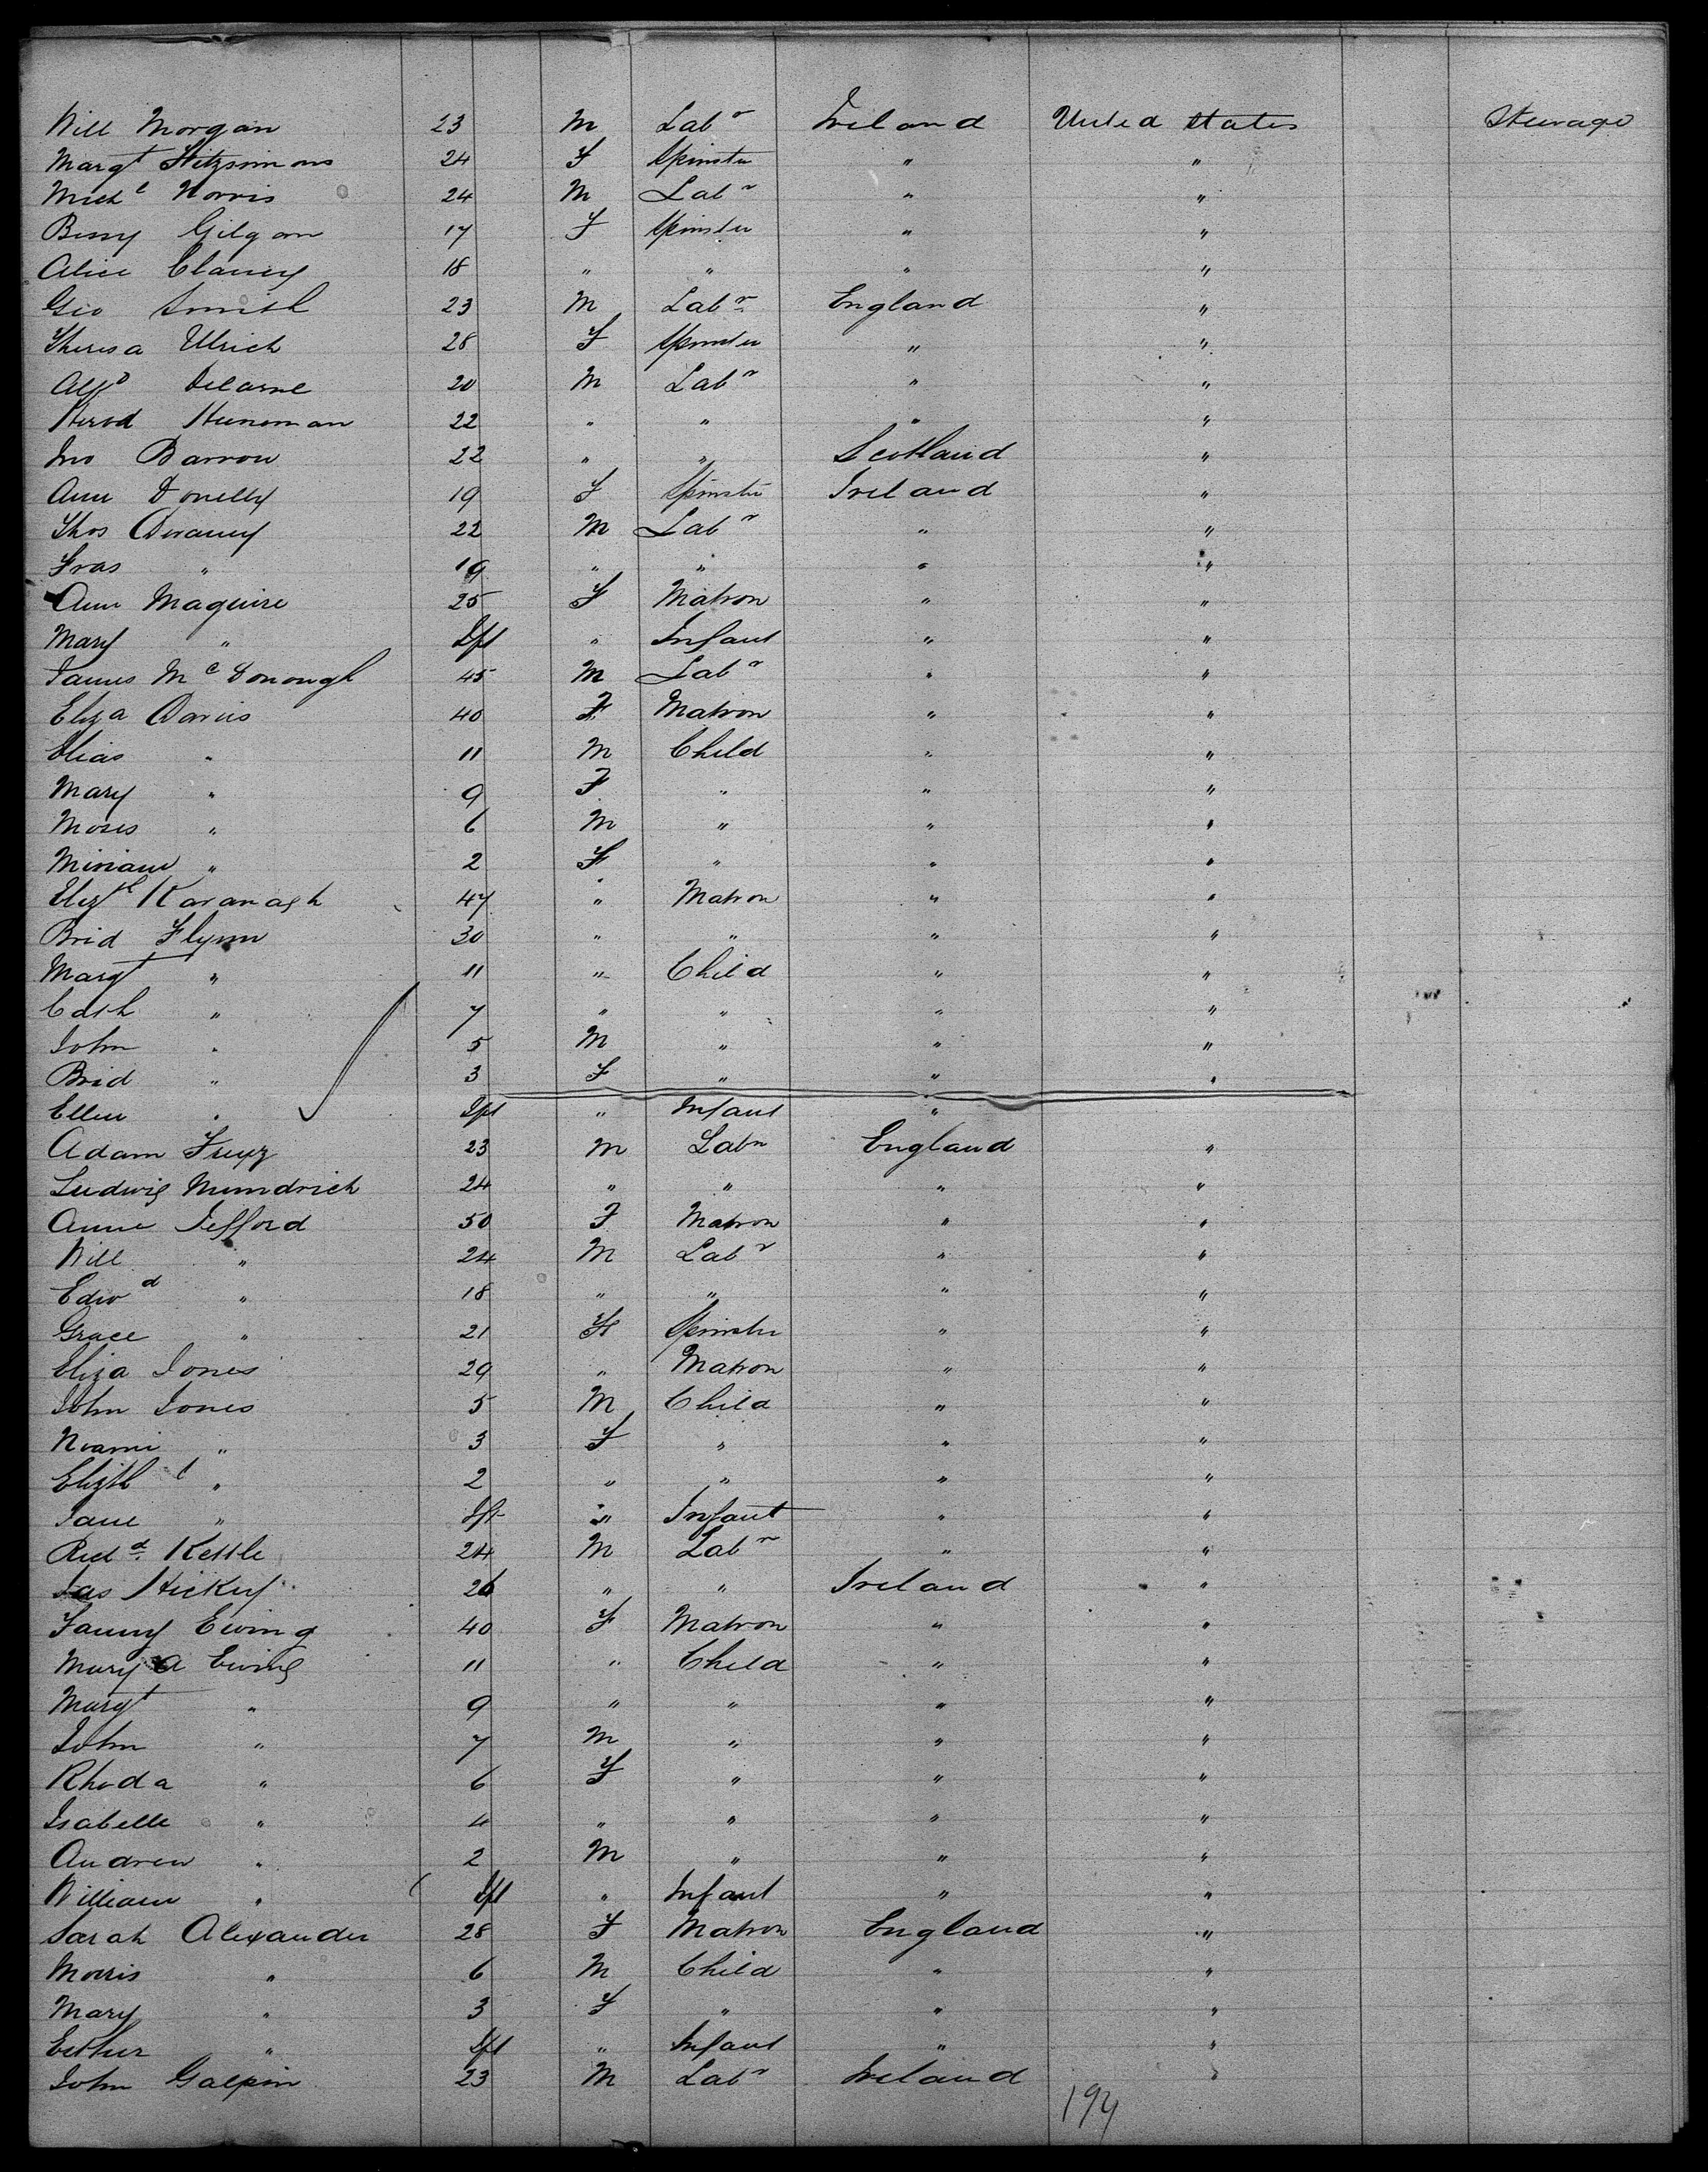 Will Morgan 23 M Lab r Ireland United States Steerage
Margt Fitzsimons 24 F Spinster " "
Mich l Norris 24 M Lab r " "
Bessy Gilgan 17 F Spinster " "
Alice Clancy 18 " " " "
Geo Smith 23 M Lab r England "
Theresa Ulrich 28 F Spinster " "
Alf d 20 M Lab r " "
22 " " " "
Jno Barrow 22 " " Scotland "
Ann Donelly 19 F Spinster Ireland "
Thos 22 M Lab r " "
Fras " 19 " " " "
Ann Maguire 25 F Matron " "
Mary " Ift " Infant " "
James Mc Donough 45 M Lab r " "
Eliza Davis 40 F Matron " "
Elias " 11 M Child " "
Mary " 9 F " " "
Moses " 6 M " " "
Miriam " 2 F " " "
Elizth Kavanagh 47 " Matron " "
Brid Flynn 30 " " " "
Margt " 11 " Child " "
Cath " 7 " " " "
John " 5 M " " "
Brid " 3 F " " "
Ellen " Ift " Infant "
Adam 23 M Labr England "
Ludwig Mundrich 24 " " " "
Anne Jefford 50 F Matron " "
Will " 24 M Lab r " "
Edw d " 18 " " " "
Grace " 21 F Spinster " "
Eliza Jones 29 " Matron " "
John Jones 5 M Child " "
Noami " 3 F " " "
Elizth " 2 " " " "
Jane " Ift " Infant " "
Ricd Kettle 24 M Lab r " "
Jas Hickey 26 " " Ireland "
Fanny Ewing 40 F Matron " "
Mary A Ewing 11 " Child " "
Margt " 9 " " " "
John " 7 M " " "
Rhoda " 6 F " " "
Isabelle " 4 " " " "
Andrew " 2 M " " "
William " Ift " Infant " "
Sarah Alexander 28 F Matron England "
Morris " 6 M Child " "
Mary " 3 F " " "
Esther " Ift " Infant " "
John Galpin 23 M Lab r Ireland "
194